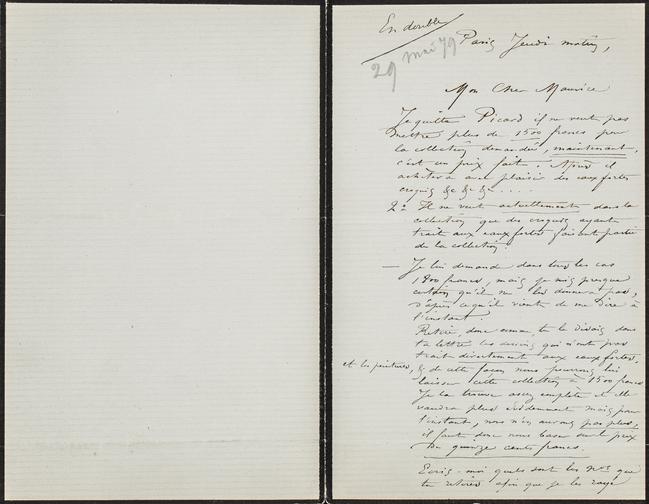 En double
Paris Jeudi matin,
29 mai 79
Mon Cher Maurice
Je quitte Picard il ne veut pas
mettre plus de 1500 francs pour
la collection demandée, maintenant,
c'est un prix fait. Après il
achètera avec plaisir des eaux fortes
croquis &c &c &c ....
2º Il ne veut actuellement dans la
collection que des croquis ayant
trait aux eaux fortes faisant partie
de la collection.
— Je lui demande dans tous les cas
1,800 francs, mais je suis presque
certain qu'il ne les donnera pas,
d'après ce qu'il vient de me dire à
l'instant.
Retire, donc comme tu le disais dans
ta lettre les dessins qui n'ont pas
trait directement aux eaux fortes,
et les peintures, & de cette façon nous pourrons lui
laisser cette collection à 1500 francs
Je la trouve assez complète et elle
vaudra plus évidemment mais pour
l'instant, nous n'en aurons pas plus,
il faut donc nous baser sur le prix
de quinze cents francs.
Ecris-moi quels sont les Nos que
tu retires afin que je les raye